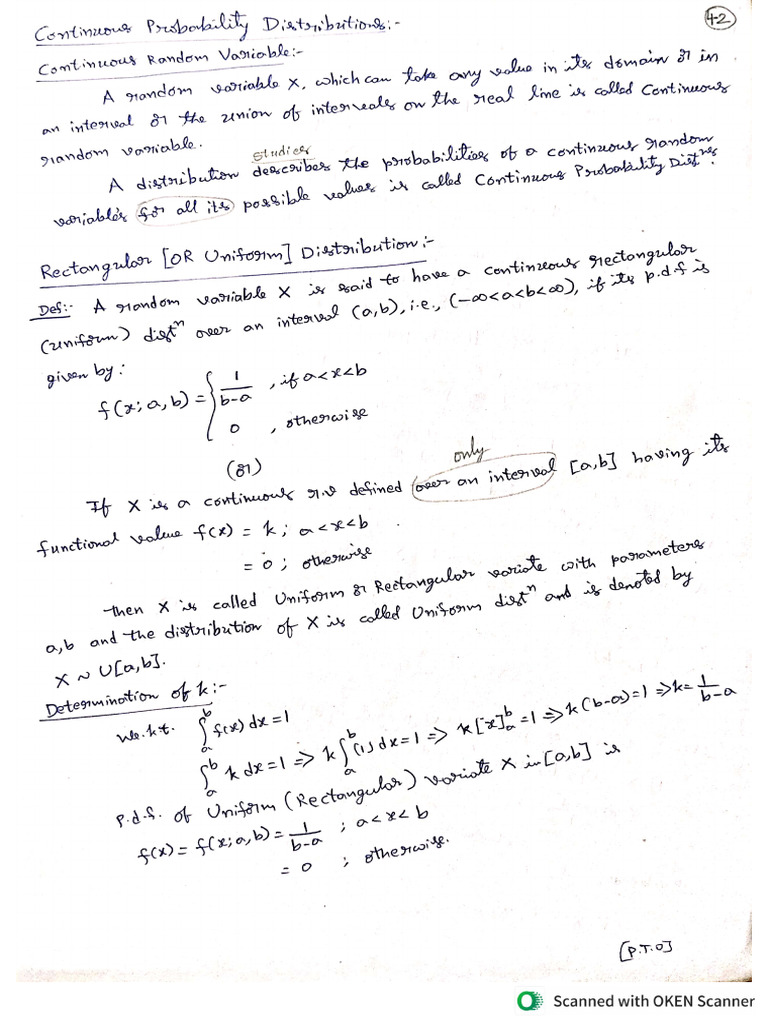 Continuous Probability Distributions:-
4-2
Continuous Random Variable:-
A random variable X, which can take any value in its domain or in
an interval or the union of intervals on the real line is called Continuous
random variable.
studies
A distribution describes the probabilities of a continuous random
variable's for all its possible values is called Continuous Probability Dist^ns.
Rectangular [OR Uniform] Distribution:-
Def:- A random variable X is said to have a continuous rectangular
(uniform) dist^n over an interval (a,b), i.e., (-∞<a<b<∞), if its p.d.f is
given by:
f(x; a, b) = { 1/(b-a) , if a<x<b
0 , otherwise
(or)
only
If X is a continuous r.v defined over an interval [a,b] having its
functional value f(x) = k; a<x<b
= 0; otherwise
then X is called Uniform or Rectangular variate with parameters
a,b and the distribution of X is called Uniform dist^n and is denoted by
X ~ U[a,b].
Determination of k:-
We.k.t. ∫_a^b f(x) dx = 1
∫_a^b k dx = 1 => k ∫_a^b (1) dx = 1 => k [x]_a^b = 1 => k(b-a) = 1 => k = 1/(b-a)
p.d.f. of Uniform (Rectangular) variate X in [a,b] is
f(x) = f(x; a, b) = 1/(b-a) ; a<x<b
= 0 ; otherwise.
[P.T.O]
Scanned with OKEN Scanner